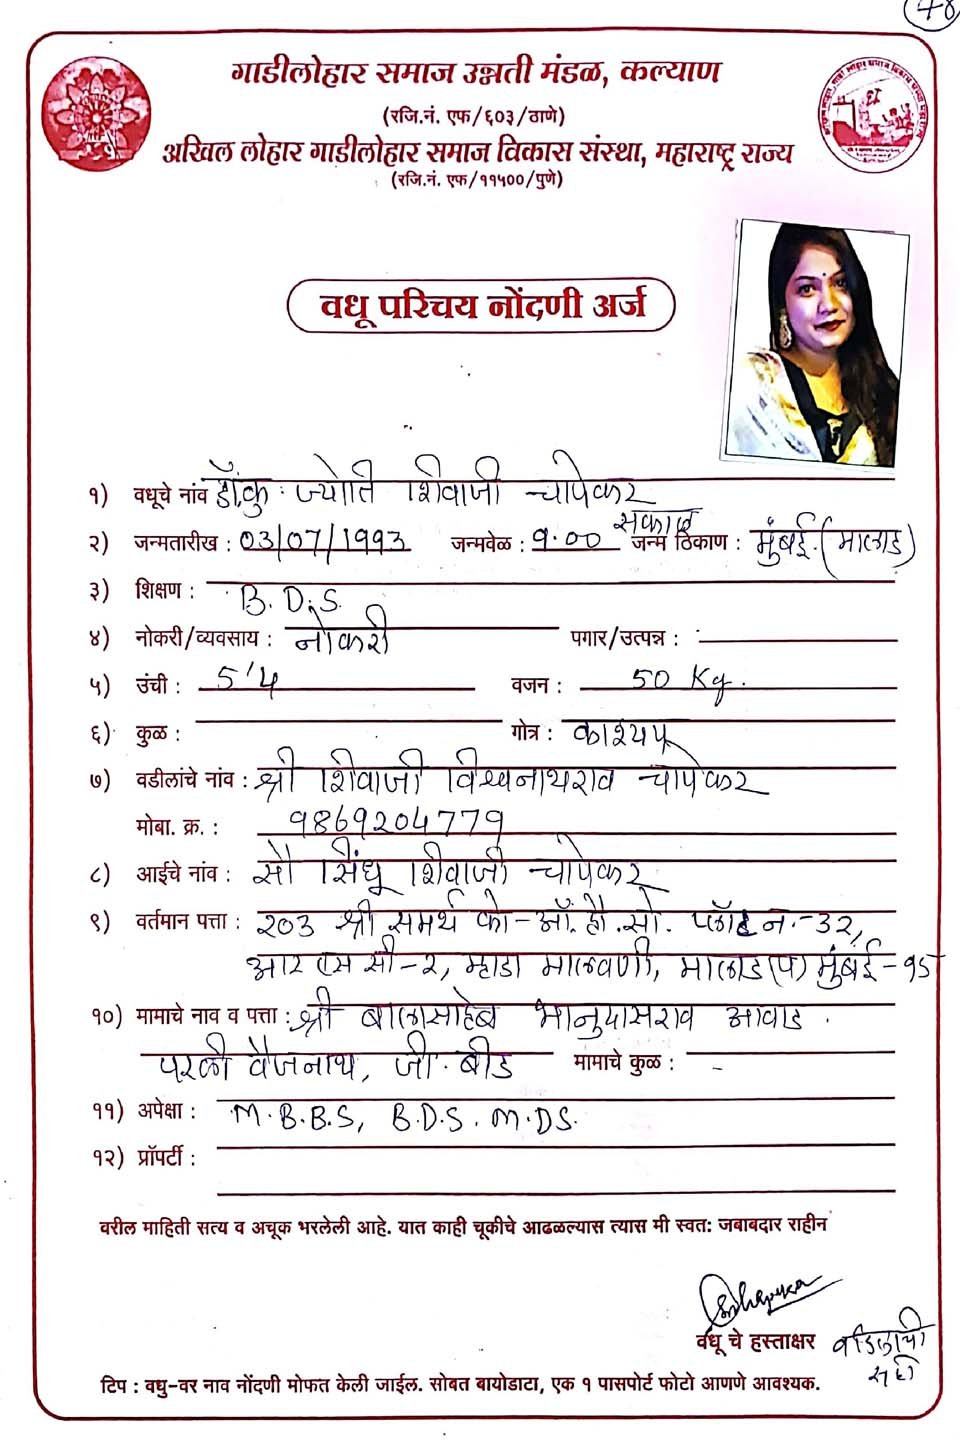 48
गाडीलोहार समाज उन्नती मंडळ, कल्याण
(रजि.नं. एफ/६०३/ठाणे)
अखिल लोहार गाडीलोहार समाज विकास संस्था, महाराष्ट्र राज्य
(रजि.नं. एफ/११५००/पुणे)
वधू परिचय नोंदणी अर्ज
१) वधूचे नांव डॉ.कु. ज्योति शिवाजी चोपेकर
२) जन्मतारीख : 03/07/1993 जन्मवेळ : 9.00 सकाळ जन्म ठिकाण : मुंबई. (मालाड)
३) शिक्षण : B. D. S.
४) नोकरी/व्यवसाय : नोकरी पगार/उत्पन्न :
५) उंची : 5'4 वजन : 50 Kg.
६) कुळ : गोत्र : काश्यप
७) वडीलांचे नांव : श्री शिवाजी विश्वनाथराव चोपेकर
मोबा. क्र. : 9869204779
८) आईचे नांव : सौ सिंधू शिवाजी चोपेकर
९) वर्तमान पत्ता : २०3 श्री समर्थ को-ऑ.हौ.सो. प्लॉट नं.-3२,
आर एस सी-२, म्हाडा मालवणी, मालाड(प) मुंबई-95
१०) मामाचे नाव व पत्ता : श्री बाळासाहेब भानुदासराव आवाड .
परळी वैजनाथ, जी. बीड मामाचे कुळ : -
११) अपेक्षा : M.B.B.S, B.D.S. M.DS.
१२) प्रॉपर्टी :
वरील माहिती सत्य व अचूक भरलेली आहे. यात काही चूकीचे आढळल्यास त्यास मी स्वतः जबाबदार राहीन
वधू चे हस्ताक्षर वडिलांची
सही
टिप : वधु-वर नाव नोंदणी मोफत केली जाईल. सोबत बायोडाटा, एक १ पासपोर्ट फोटो आणणे आवश्यक.